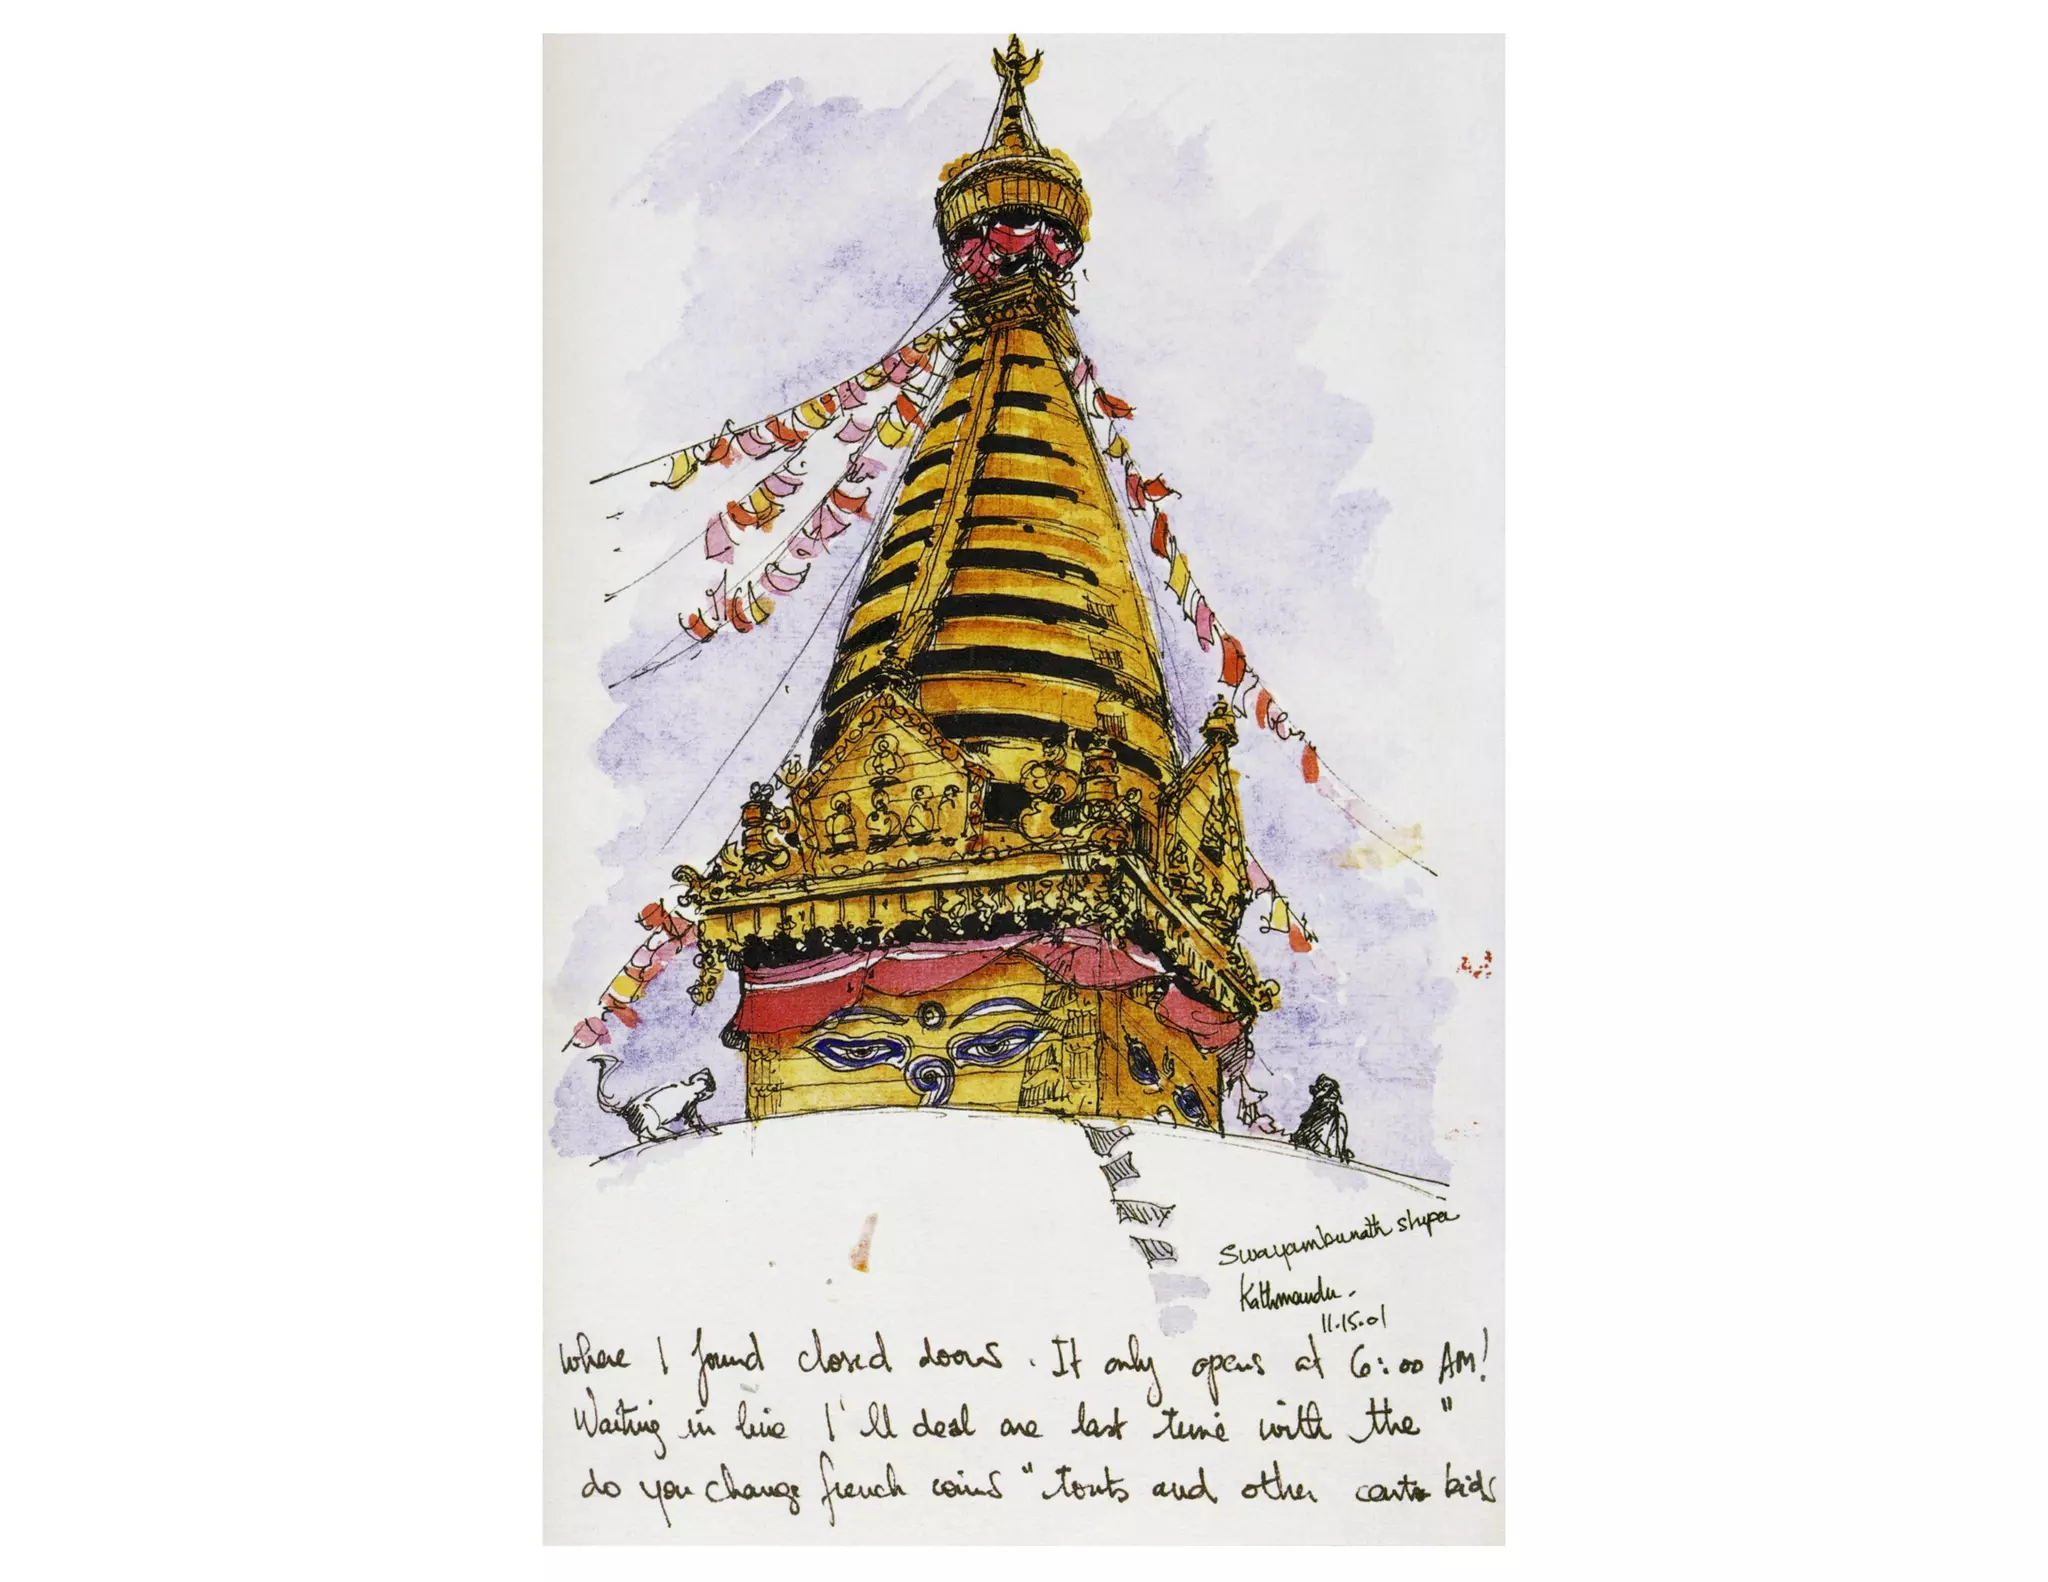 Swayambunath stupa
Kathmandu.
11.15.01
Where I found closed doors. It only opens at 6:00 AM!
Waiting in line I'll deal one last time with the "
do you change french coins" touts and other kids